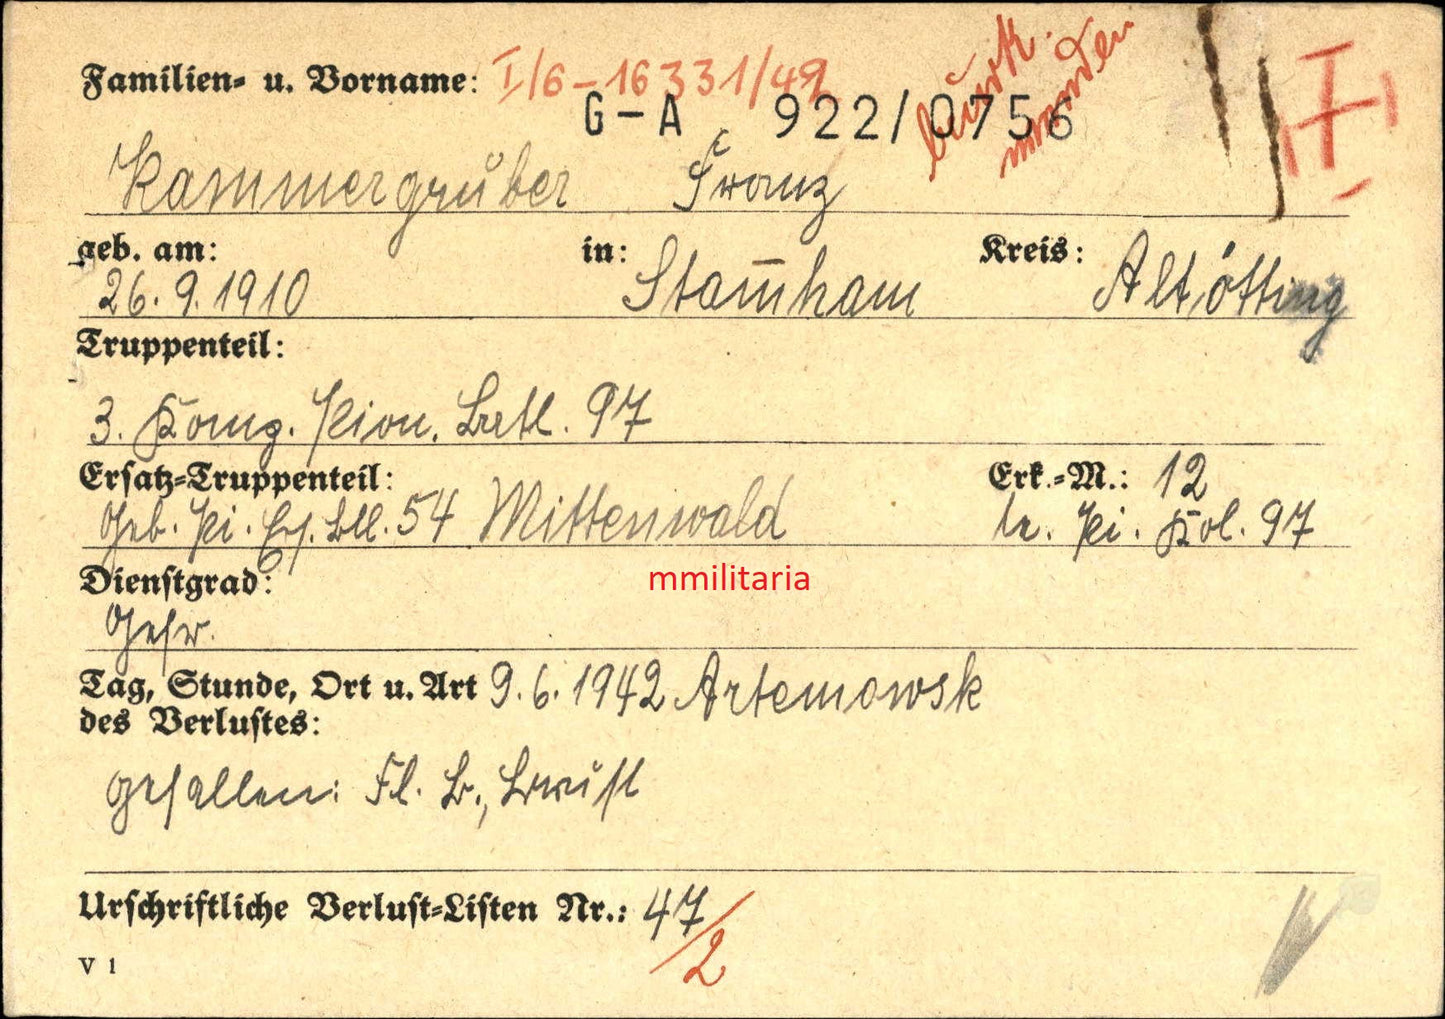 Familien- u. Vorname: I/6-16331/49
G-A 922/0756
Kammergruber Franz
geb. am: in: Kreis:
26.9.1910 Stam̄ham Altötting
Truppenteil:
3. Komp. Pion. Batl. 97
Ersatz-Truppenteil: Erk.-M.: 12
Geb. Pi. Ers. Btl. 54 Mittenwald le. Pi. Kol. 97
Dienstgrad:
Gefr.
mmilitaria
Tag, Stunde, Ort u. Art 9.6.1942 Artemowsk
des Verlustes:
gefallen: Fl. B., Brust
Urschriftliche Verlust-Listen Nr.: 47/2
V 1